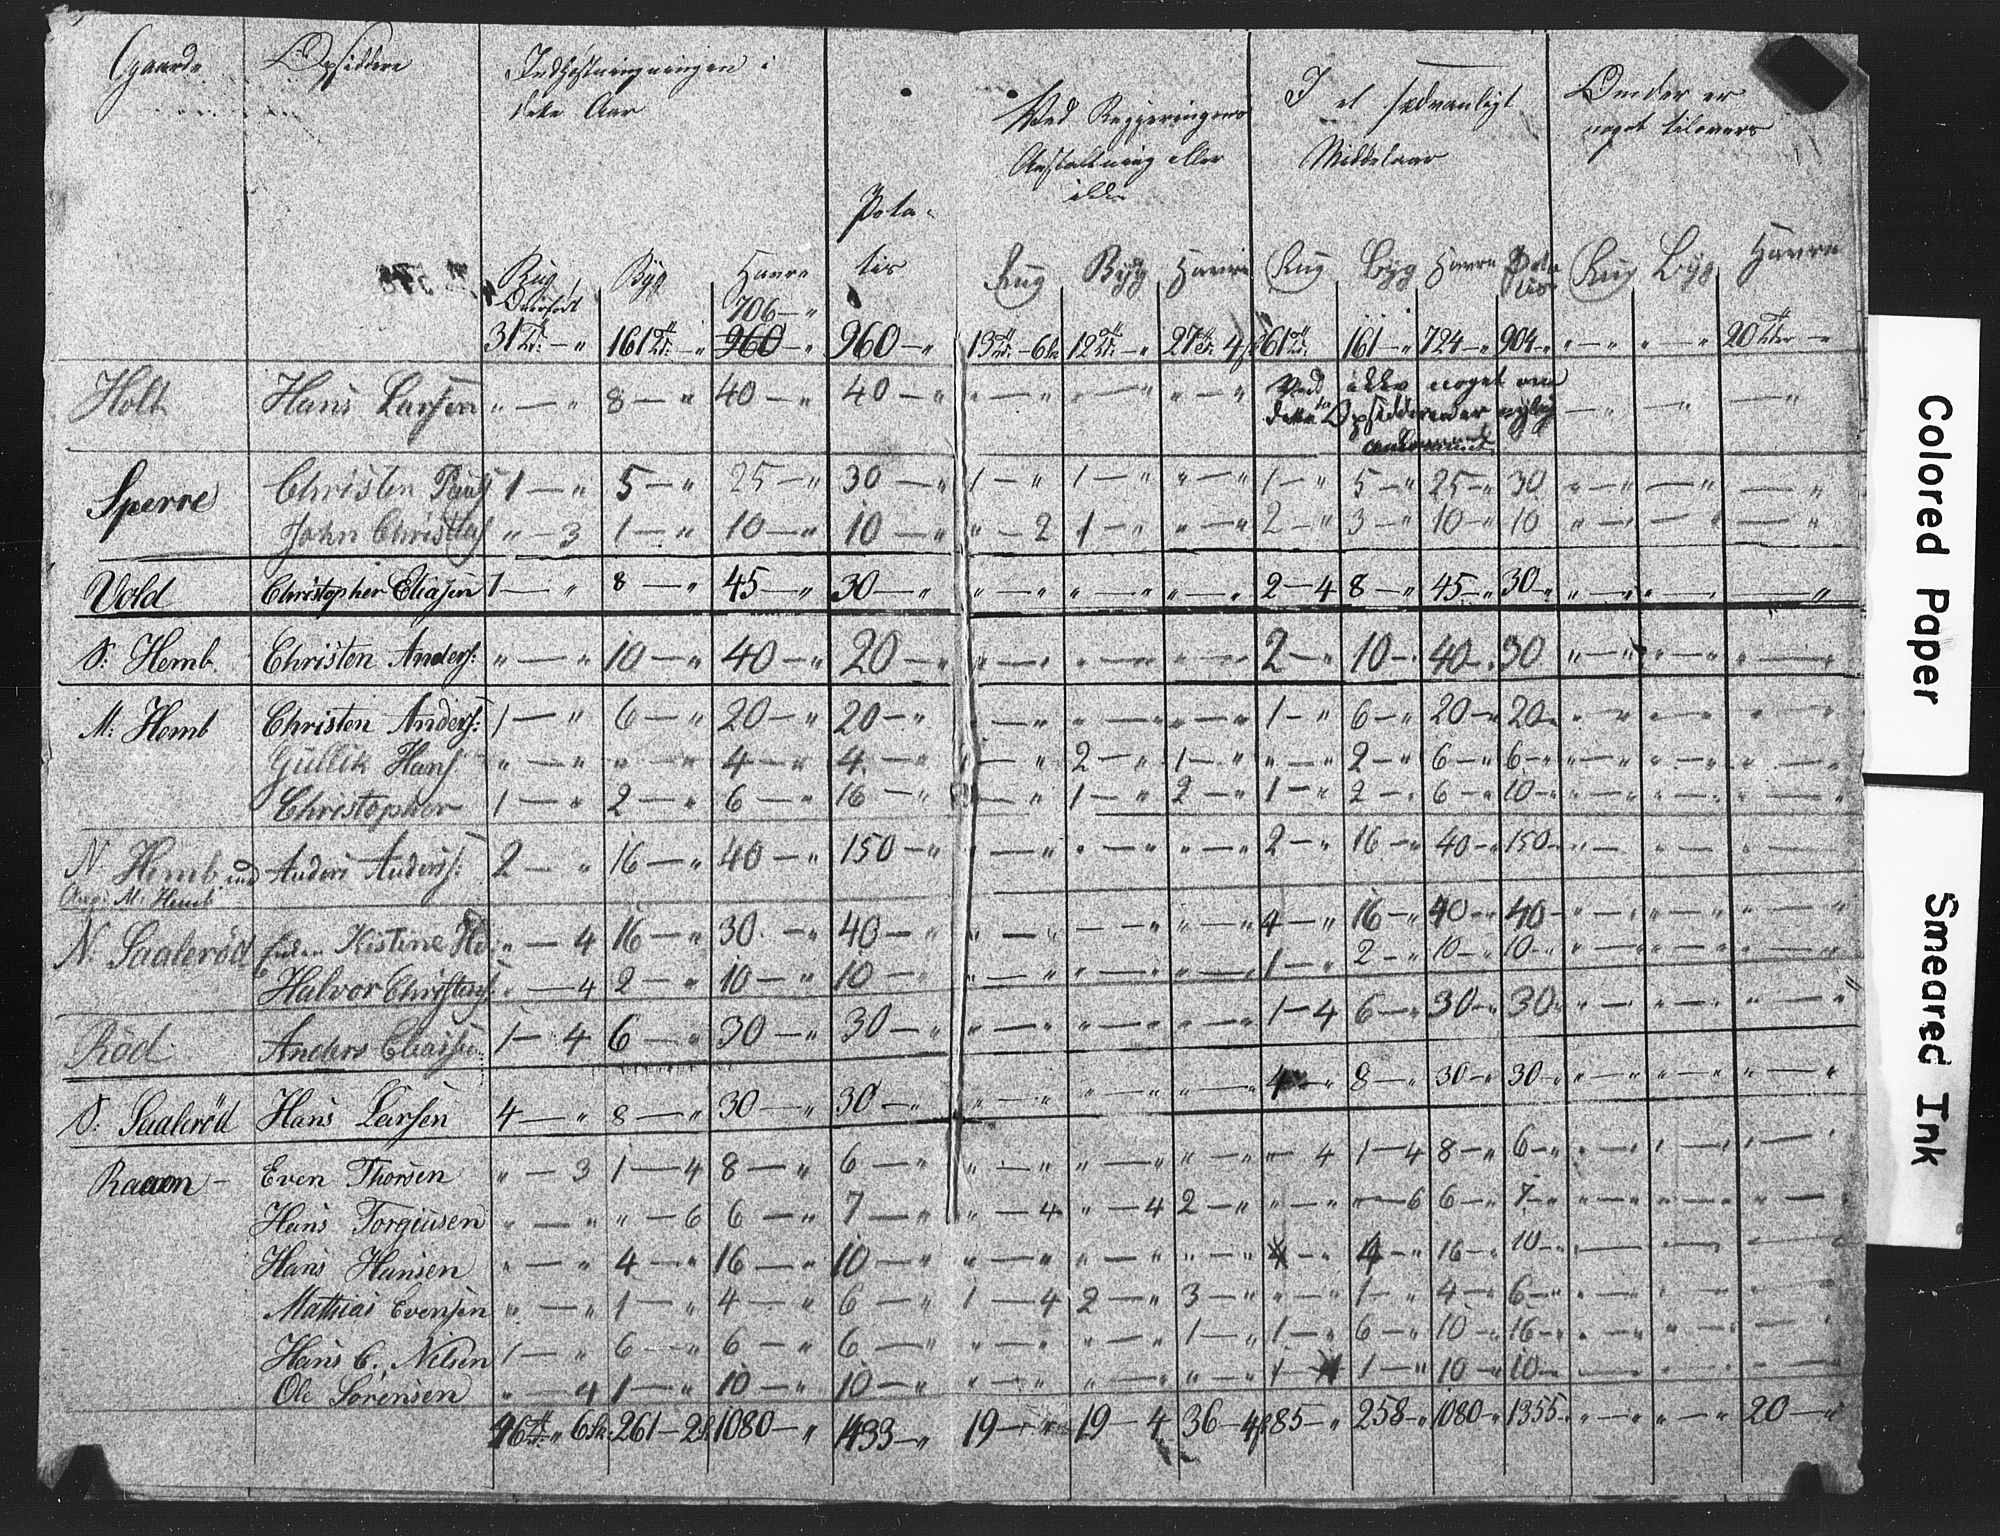 Gaarde Opsiddere Indhøstningningen i
dette Aar
Pota-
tis
Ved Regjeringens
Anstaltning eller
ikke
I et sædvanligt
Middelaar
Under er
noget tilovers
Rug Byg Havre Rug Byg Havre Rug Byg Havre Potatis Rug Byg Havre
Overført 706 — "
31 Tdr. — " 161 Tdr. — " 960 — " 960 — " 13 Tdr. — 6 sk 12 Tdr. — " 27 Tdr. 4 61 Tdr. 161 — " 724 — " 904 — " " — " " — " 20 Tdr —
Holt Hans Larsen " — " 8 — " 40 — " 40 — " " — " " — " " — " Ved ikke noget om
dette da Opsidderen er nylig
ankommet
Sperre Christen Pauls 1 — " 5 — " 25 — " 30 — " 1 — " 1 — " " — " 1 — " 5 — " 25 — " 30 " — " " — " — "
John Christens " — 3 1 — " 10 — " 10 — " " — 2 1 — " " — " 2 — " 3 — " 10 — " 10 " — " " — " — "
Vold Christopher Eliasen 1 — " 8 — " 45 — " 30 — " " — " " — " " — " 2 — 4 8 — " 45 — " 30 — " " — " " — " — "
S: Hemb Christen Anders: " — " 10 — " 40 — " 20 — " " — " " — " " — " 2 — " 10 — " 40 — " 30 " — " " — " " — "
M: Hemb Christen Anders: 1 — " 6 — " 20 — " 20 — " " — " " — " " — " 1 — " 6 — " 20 — " 20 — " " — " " — " " — "
Gullik Hans " — " " — " 4 — " 4 — " — " 2 — " 1 — " " — " 2 — " 6 — " 6 — " " — " " — " " — "
Christopher 1 — " 2 — " 6 — " 16 — " — " 1 — " 2 — " 1 — " 2 — " 6 — " 10 — " " — " " — " " — "
N. Hemb und Anders Anders: 2 — " 16 — " 40 — " 150 — " " — " " — " " — " 2 — " 16 — " 40 — " 150 — " " — " — " " — "
M. Hemb
N. Saalerød Enken Kistine " — 4 16 — " 30 — " 40 — " " — " " — " " — " 4 — " 16 — " 40 — " 40 — " " — " " — " " — "
Halvor Christens " — 4 2 — " 10 — " 10 — " " — " " — " " — " 1 — " 2 — " 10 — " 10 — " " — " " — " " — "
Rød Anders Eliassen 1 — 4 6 — " 30 — " 30 — " " — " " — " " — " 1 — 4 6 — " 30 — " 30 — " " — " " — " " — "
S: Saalerød Hans Larsen 4 — " 8 — " 30 — " 30 — " " — " " — " " — " 4 — " 8 — " 30 — " 30 — " " — " " — " " — "
Raaen — Even Thorsen " — 3 1 — 4 8 — " 6 — " " — " " — " " — " " — 4 1 — 4 8 — " 6 — " " — " " — " " — "
Hans Torgiusen " — " " — 6 6 — " 7 — " " — 4 " — 4 2 — " " — " " — 6 6 — " 7 — " " — " " — " " — "
Hans Hansen " — " 4 — " 16 — " 10 — " " — " " — " " — " — " 4 — " 16 — " 10 — " " — " " — " " — "
Mathias Evensen " — " 1 — " 4 — " 6 — " 1 — 4 2 — " 3 — " " — " 1 — " 4 — " 6 — " " — " " — " " — "
Hans C. Nilsen 1 — " 6 — " 6 — " 6 — " " — " " — " 1 — " 1 — " 6 — " 10 — " 16 — " " — " " — " " — "
Ole Sørensen " — 4 1 — " 10 — " 10 — " " — " " — " " — " 1 — 1 — " 10 — " 10 — " — " — " " — "
46 Tdr. " 6 sk. 261 — 2 1080 — " 1433 — " 19 — " 19 — 4 36 — 4 85 — " 258 — " 1080 — " 1355 — " " — " " — " 20 — "
Colored Paper
Smeared Ink